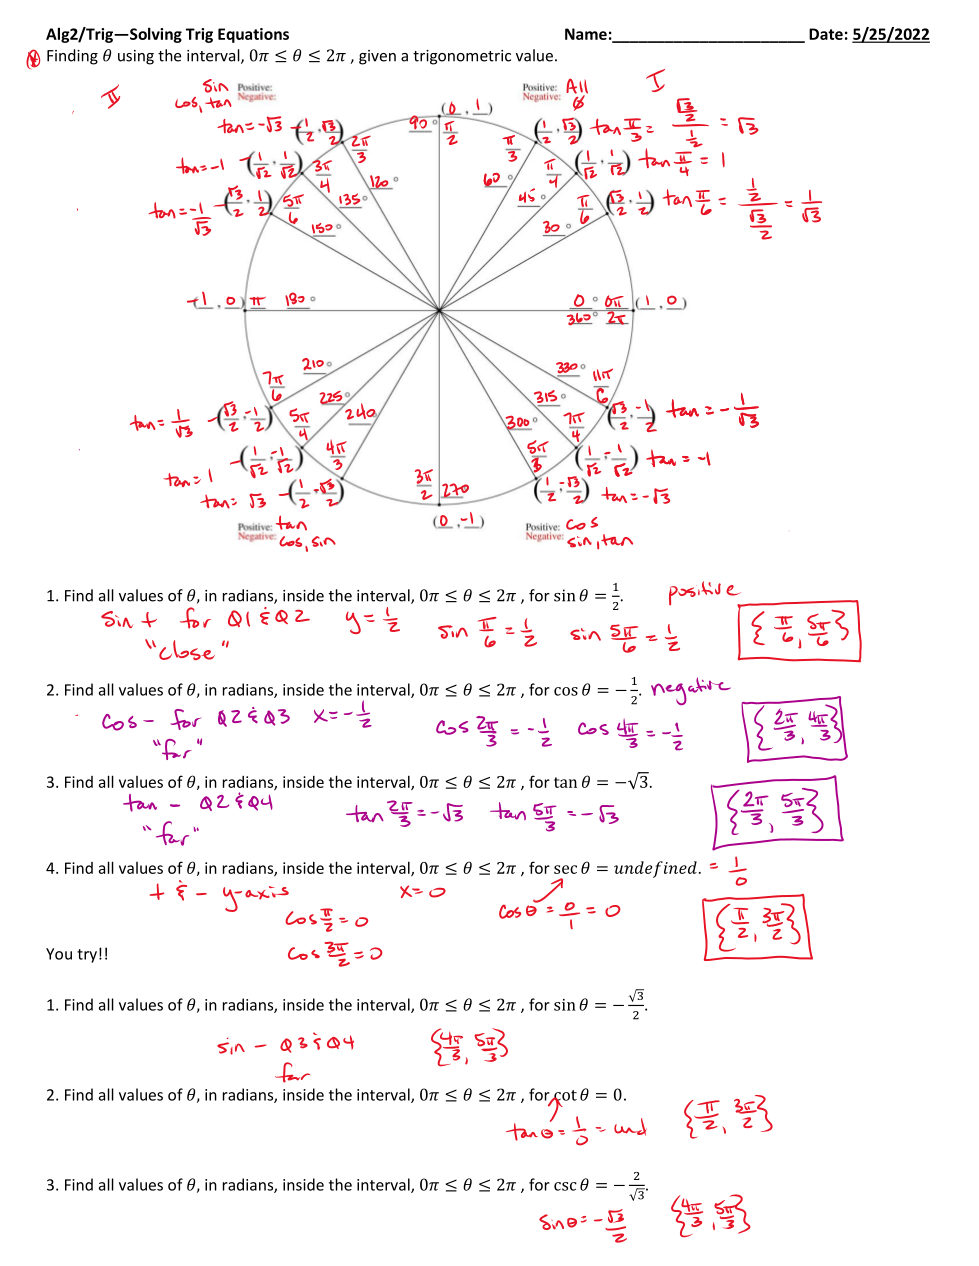 Alg2/Trig—Solving Trig Equations Name:________________________ Date: 5/25/2022
Finding θ using the interval, 0π ≤ θ ≤ 2π , given a trigonometric value.
II sin Positive: cos, tan Negative:
Positive: All I
Negative: ∅
(0, 1)
90° π/2
tan = -√3 (-1/2, √3/2) 2π/3 120°
tan = -1 (-1/√2, 1/√2) 3π/4 135°
tan = -1/√3 (-√3/2, 1/2) 5π/6 150°
60° π/3 (1/2, √3/2) tan π/3 = (√3/2)/(1/2) = √3
45° π/4 (1/√2, 1/√2) tan π/4 = 1
30° π/6 (√3/2, 1/2) tan π/6 = (1/2)/(√3/2) = 1/√3
(-1, 0) π 180°
0° 0π (1, 0)
360° 2π
210° 7π/6 tan = 1/√3 (-√3/2, -1/2)
225° 5π/4 tan = 1 (-1/√2, -1/√2)
240 4π/3 tan = √3 (-1/2, -√3/2)
330° 11π/6 (√3/2, -1/2) tan = -1/√3
315° 7π/4 (1/√2, -1/√2) tan = -1
300° 5π/3 (1/2, -√3/2) tan = -√3
3π/2 270
(0, -1)
Positive: tan
Negative: cos, sin
Positive: cos
Negative: sin, tan
1. Find all values of θ, in radians, inside the interval, 0π ≤ θ ≤ 2π , for sin θ = 1/2. positive
sin + for Q1 & Q2 y = 1/2 sin π/6 = 1/2 sin 5π/6 = 1/2 {π/6, 5π/6}
"close"
2. Find all values of θ, in radians, inside the interval, 0π ≤ θ ≤ 2π , for cos θ = −1/2. negative
cos - for Q2 & Q3 x = -1/2 cos 2π/3 = -1/2 cos 4π/3 = -1/2 {2π/3, 4π/3}
"far"
3. Find all values of θ, in radians, inside the interval, 0π ≤ θ ≤ 2π , for tan θ = −√3.
tan - Q2 & Q4 tan 2π/3 = -√3 tan 5π/3 = -√3 {2π/3, 5π/3}
"far"
4. Find all values of θ, in radians, inside the interval, 0π ≤ θ ≤ 2π , for sec θ = undefined. = 1/0
+ & - y-axis x = 0 cos θ = 0/1 = 0 {π/2, 3π/2}
cos π/2 = 0
You try!! cos 3π/2 = 0
1. Find all values of θ, in radians, inside the interval, 0π ≤ θ ≤ 2π , for sin θ = −√3/2.
sin - Q3 & Q4 {4π/3, 5π/3}
far
2. Find all values of θ, in radians, inside the interval, 0π ≤ θ ≤ 2π , for cot θ = 0.
tan θ = 1/0 = und {π/2, 3π/2}
3. Find all values of θ, in radians, inside the interval, 0π ≤ θ ≤ 2π , for csc θ = −2/√3.
sin θ = -√3/2 {4π/3, 5π/3}